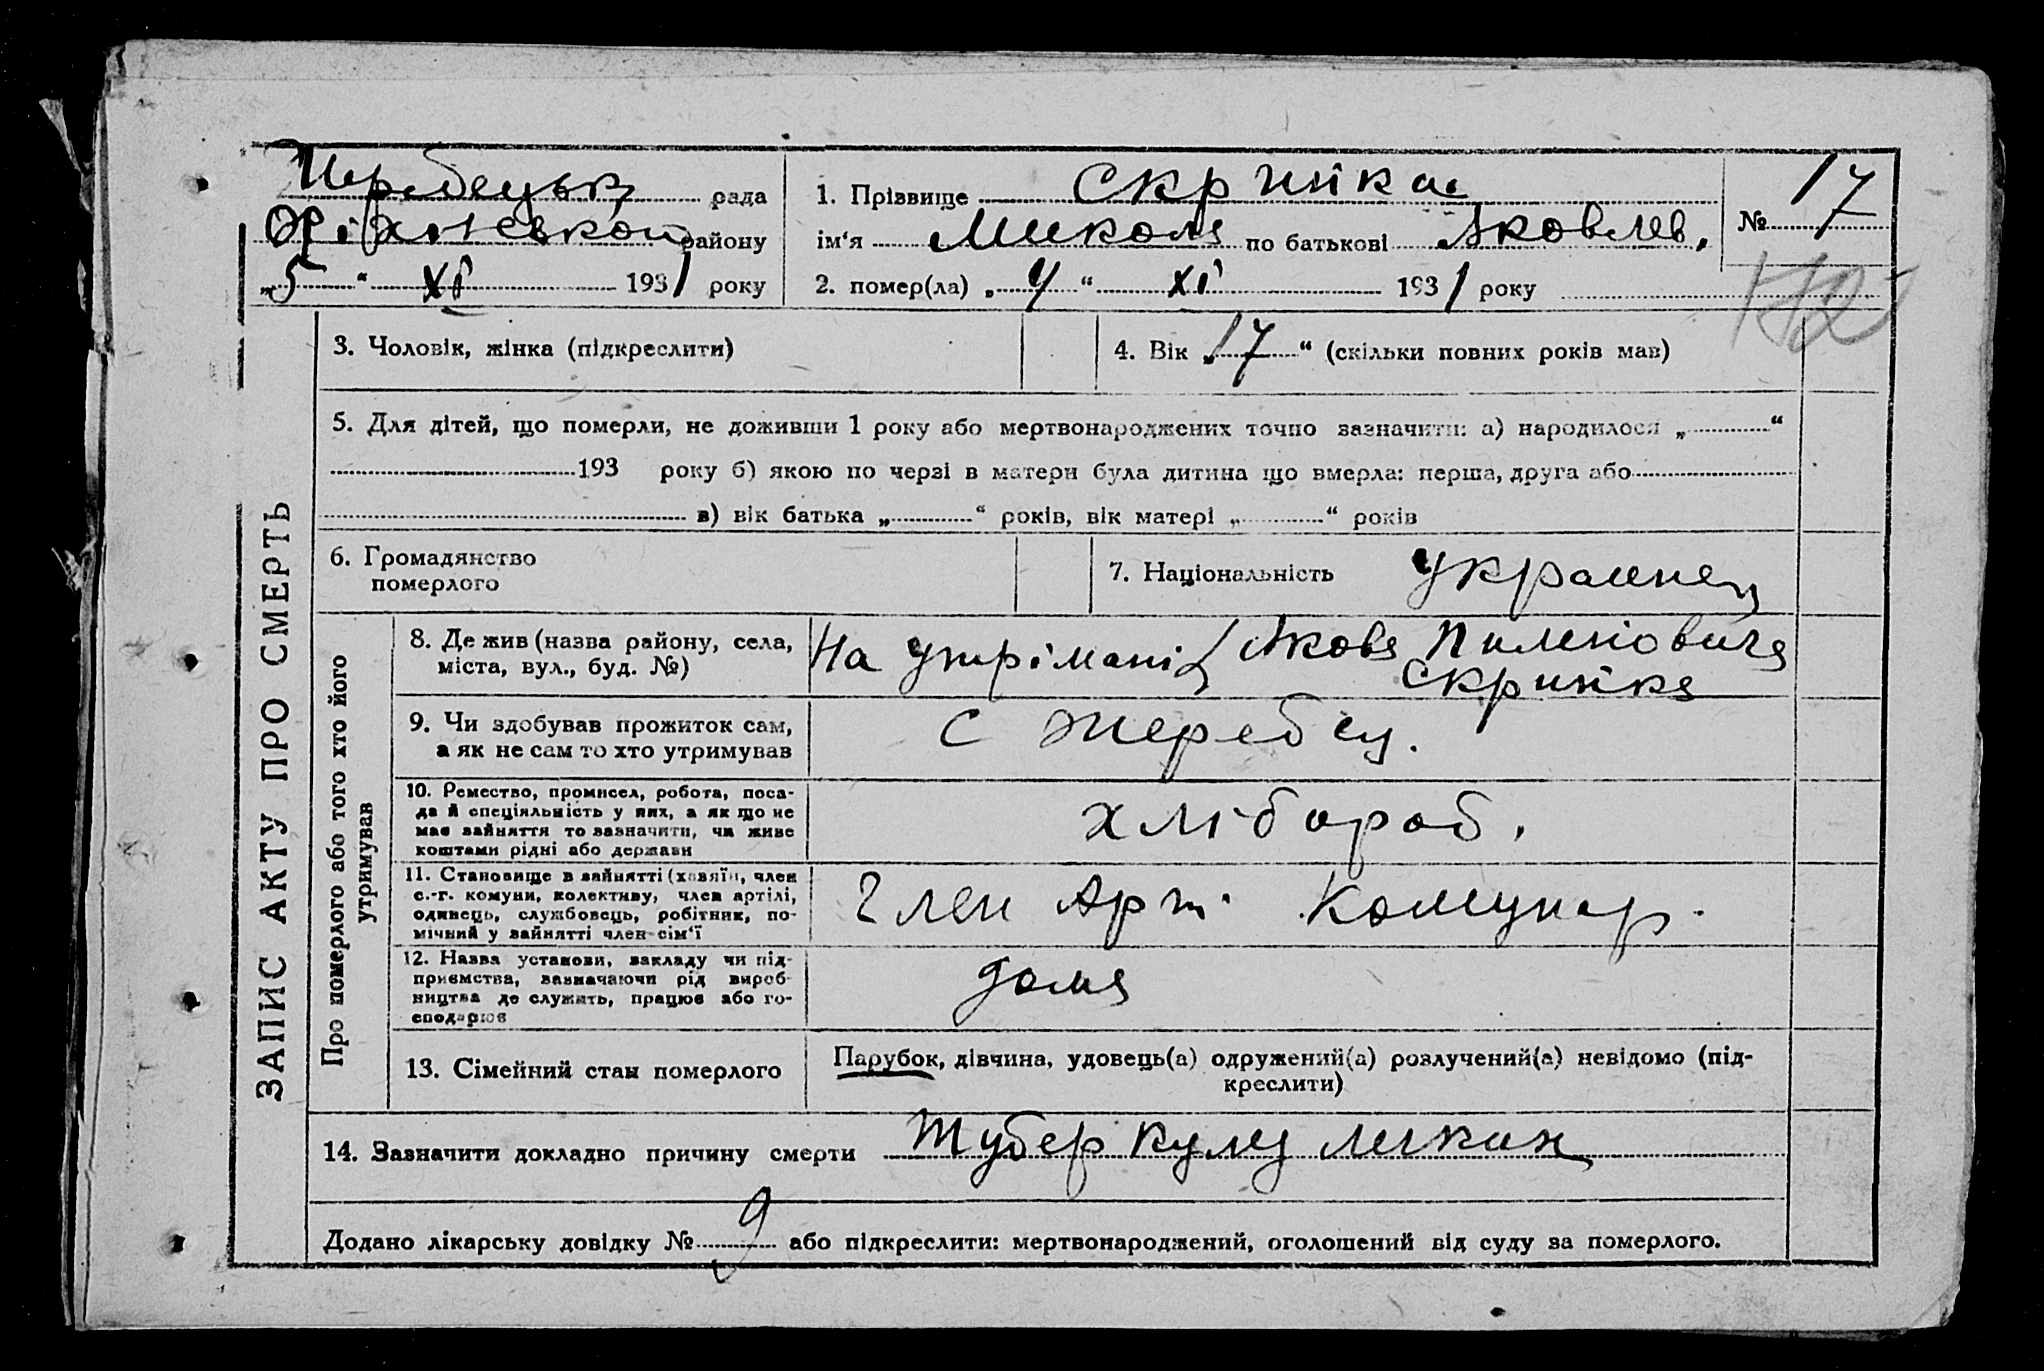 Жеребецька рада
Оріхівської району
„5“ XI 1931 року
1. Прізвище Скрипка
ім'я Микола по батькові Яковлев.
2. помер(ла) „4“ XI 1931 року
№ 17
3. Чоловік, жінка (підкреслити)
4. Вік „17“ (скільки повних років мав)
5. Для дітей, що померли, не доживши 1 року або мертвонароджених точно зазначити: а) народилося „ “
193 року б) якою по черзі в матери була дитина що вмерла: перша, друга або
в) вік батька „ “ років, вік матері „ “ років
6. Громадянство
померлого
7. Національність Украинец
ЗАПИС АКТУ ПРО СМЕРТЬ
Про померлого або того хто його
утримував
8. Де жив (назва району, села,
міста, вул., буд. №)
На утрімані Якова
Скрипка
9. Чи здобував прожиток сам,
а як не сам то хто утримував
С Жеребец.
10. Ремество, промисел, робота, поса-
да й спеціяльність у них, а як що не
має зайняття то зазначити, чи живе
коштами рідні або держави
хлібороб.
11. Становище в зайнятті (хазяїн, член
с.-г. комуни, колективу, член артілі,
одинець, службовець, робітник, по-
мічний у зайнятті член сім'ї
Член Арт. Комунар.
12. Назва установи, закладу чи під-
приємства, зазначаючи рід вироб-
ництва де служить, працює або го-
сподарює
дома
13. Сімейний стан померлого
Парубок, дівчина, удовець(а) одружений(а) розлучений(а) невідомо (під-
креслити)
14. Зазначити докладно причину смерти Туберкулез легких
Додано лікарську довідку № 9 або підкреслити: мертвонароджений, оголошений від суду за померлого.